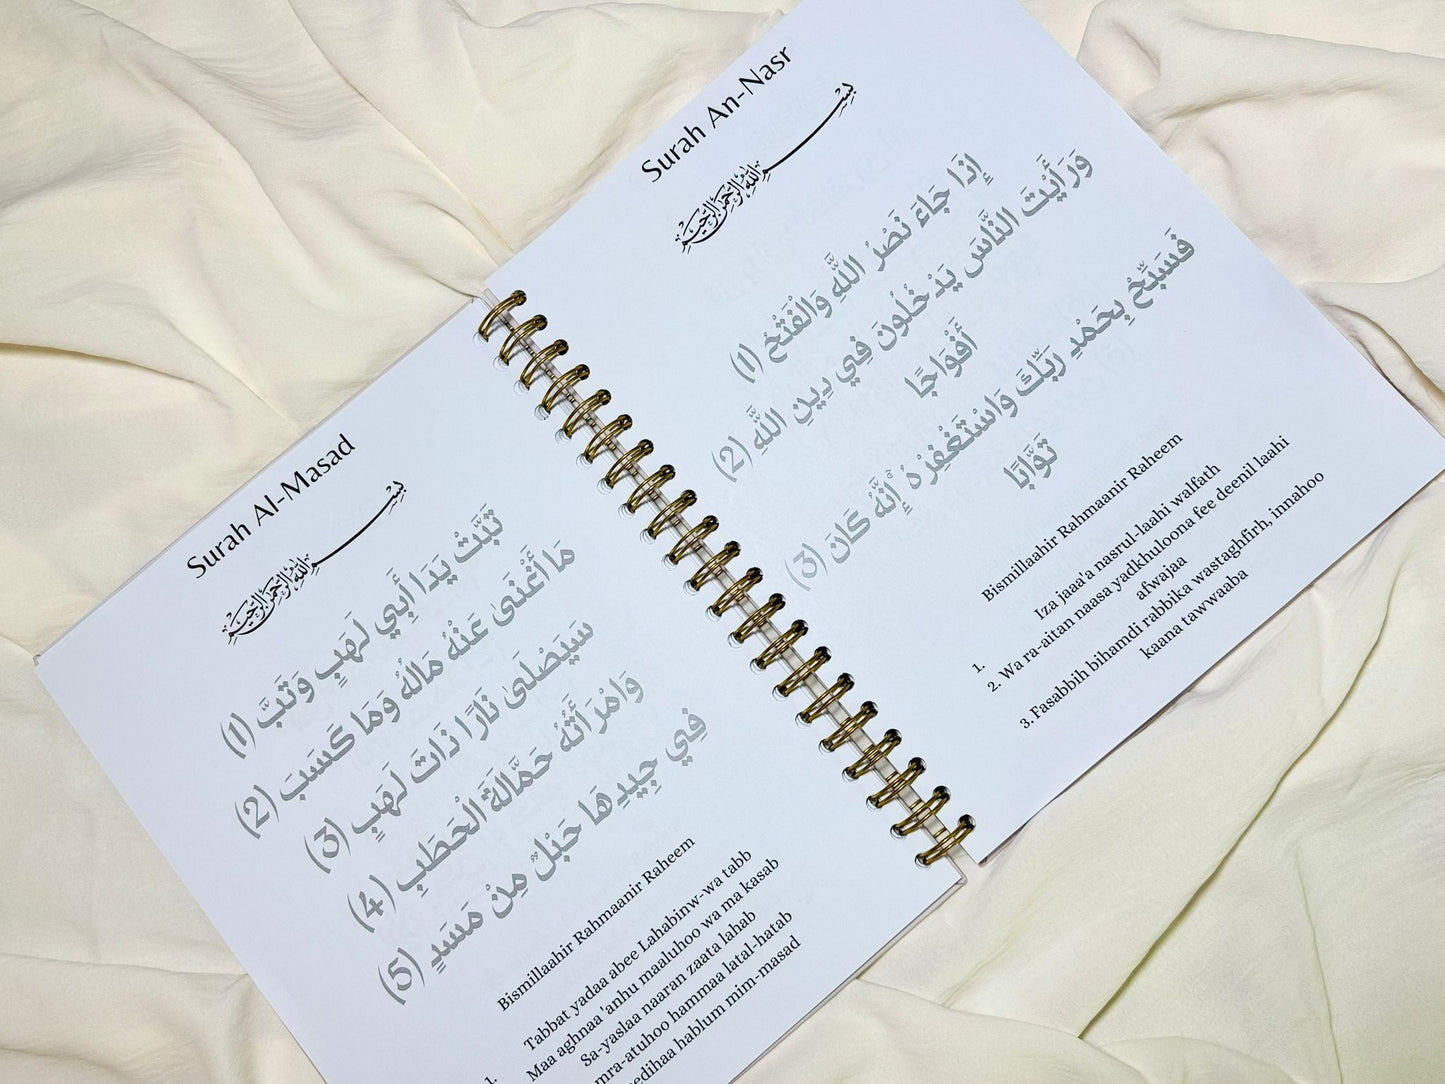 Surah Al-Masad
بِسْمِ اللهِ الرَّحْمَنِ الرَّحِيمِ
تَبَّتْ يَدَا أَبِي لَهَبٍ وَتَبَّ (1)
مَا أَغْنَىٰ عَنْهُ مَالُهُ وَمَا كَسَبَ (2)
سَيَصْلَىٰ نَارًا ذَاتَ لَهَبٍ (3)
وَامْرَأَتُهُ حَمَّالَةَ الْحَطَبِ (4)
فِي جِيدِهَا حَبْلٌ مِنْ مَسَدٍ (5)
Bismillaahir Rahmaanir Raheem
Tabbat yadaa abee Lahabinw-wa tabb
1. Maa aghnaa 'anhu maaluhoo wa ma kasab
Sa-yaslaa naaran zaata lahab
mra-atuhoo hammaa latal-hatab
eedihaa hablum mim-masad
Surah An-Nasr
بِسْمِ اللهِ الرَّحْمَنِ الرَّحِيمِ
إِذَا جَاءَ نَصْرُ اللَّهِ وَالْفَتْحُ (1)
وَرَأَيْتَ النَّاسَ يَدْخُلُونَ فِي دِينِ اللَّهِ (2)
أَفْوَاجًا
فَسَبِّحْ بِحَمْدِ رَبِّكَ وَاسْتَغْفِرْهُ ۚ إِنَّهُ كَانَ (3)
تَوَّابًا
Bismillaahir Rahmaanir Raheem
1. Iza jaaa'a nasrul-laahi walfath
2. Wa ra-aitan naasa yadkhuloona fee deenil laahi
afwajaa
3. Fasabbih bihamdi rabbika wastaghfirh, innahoo
kaana tawwaaba